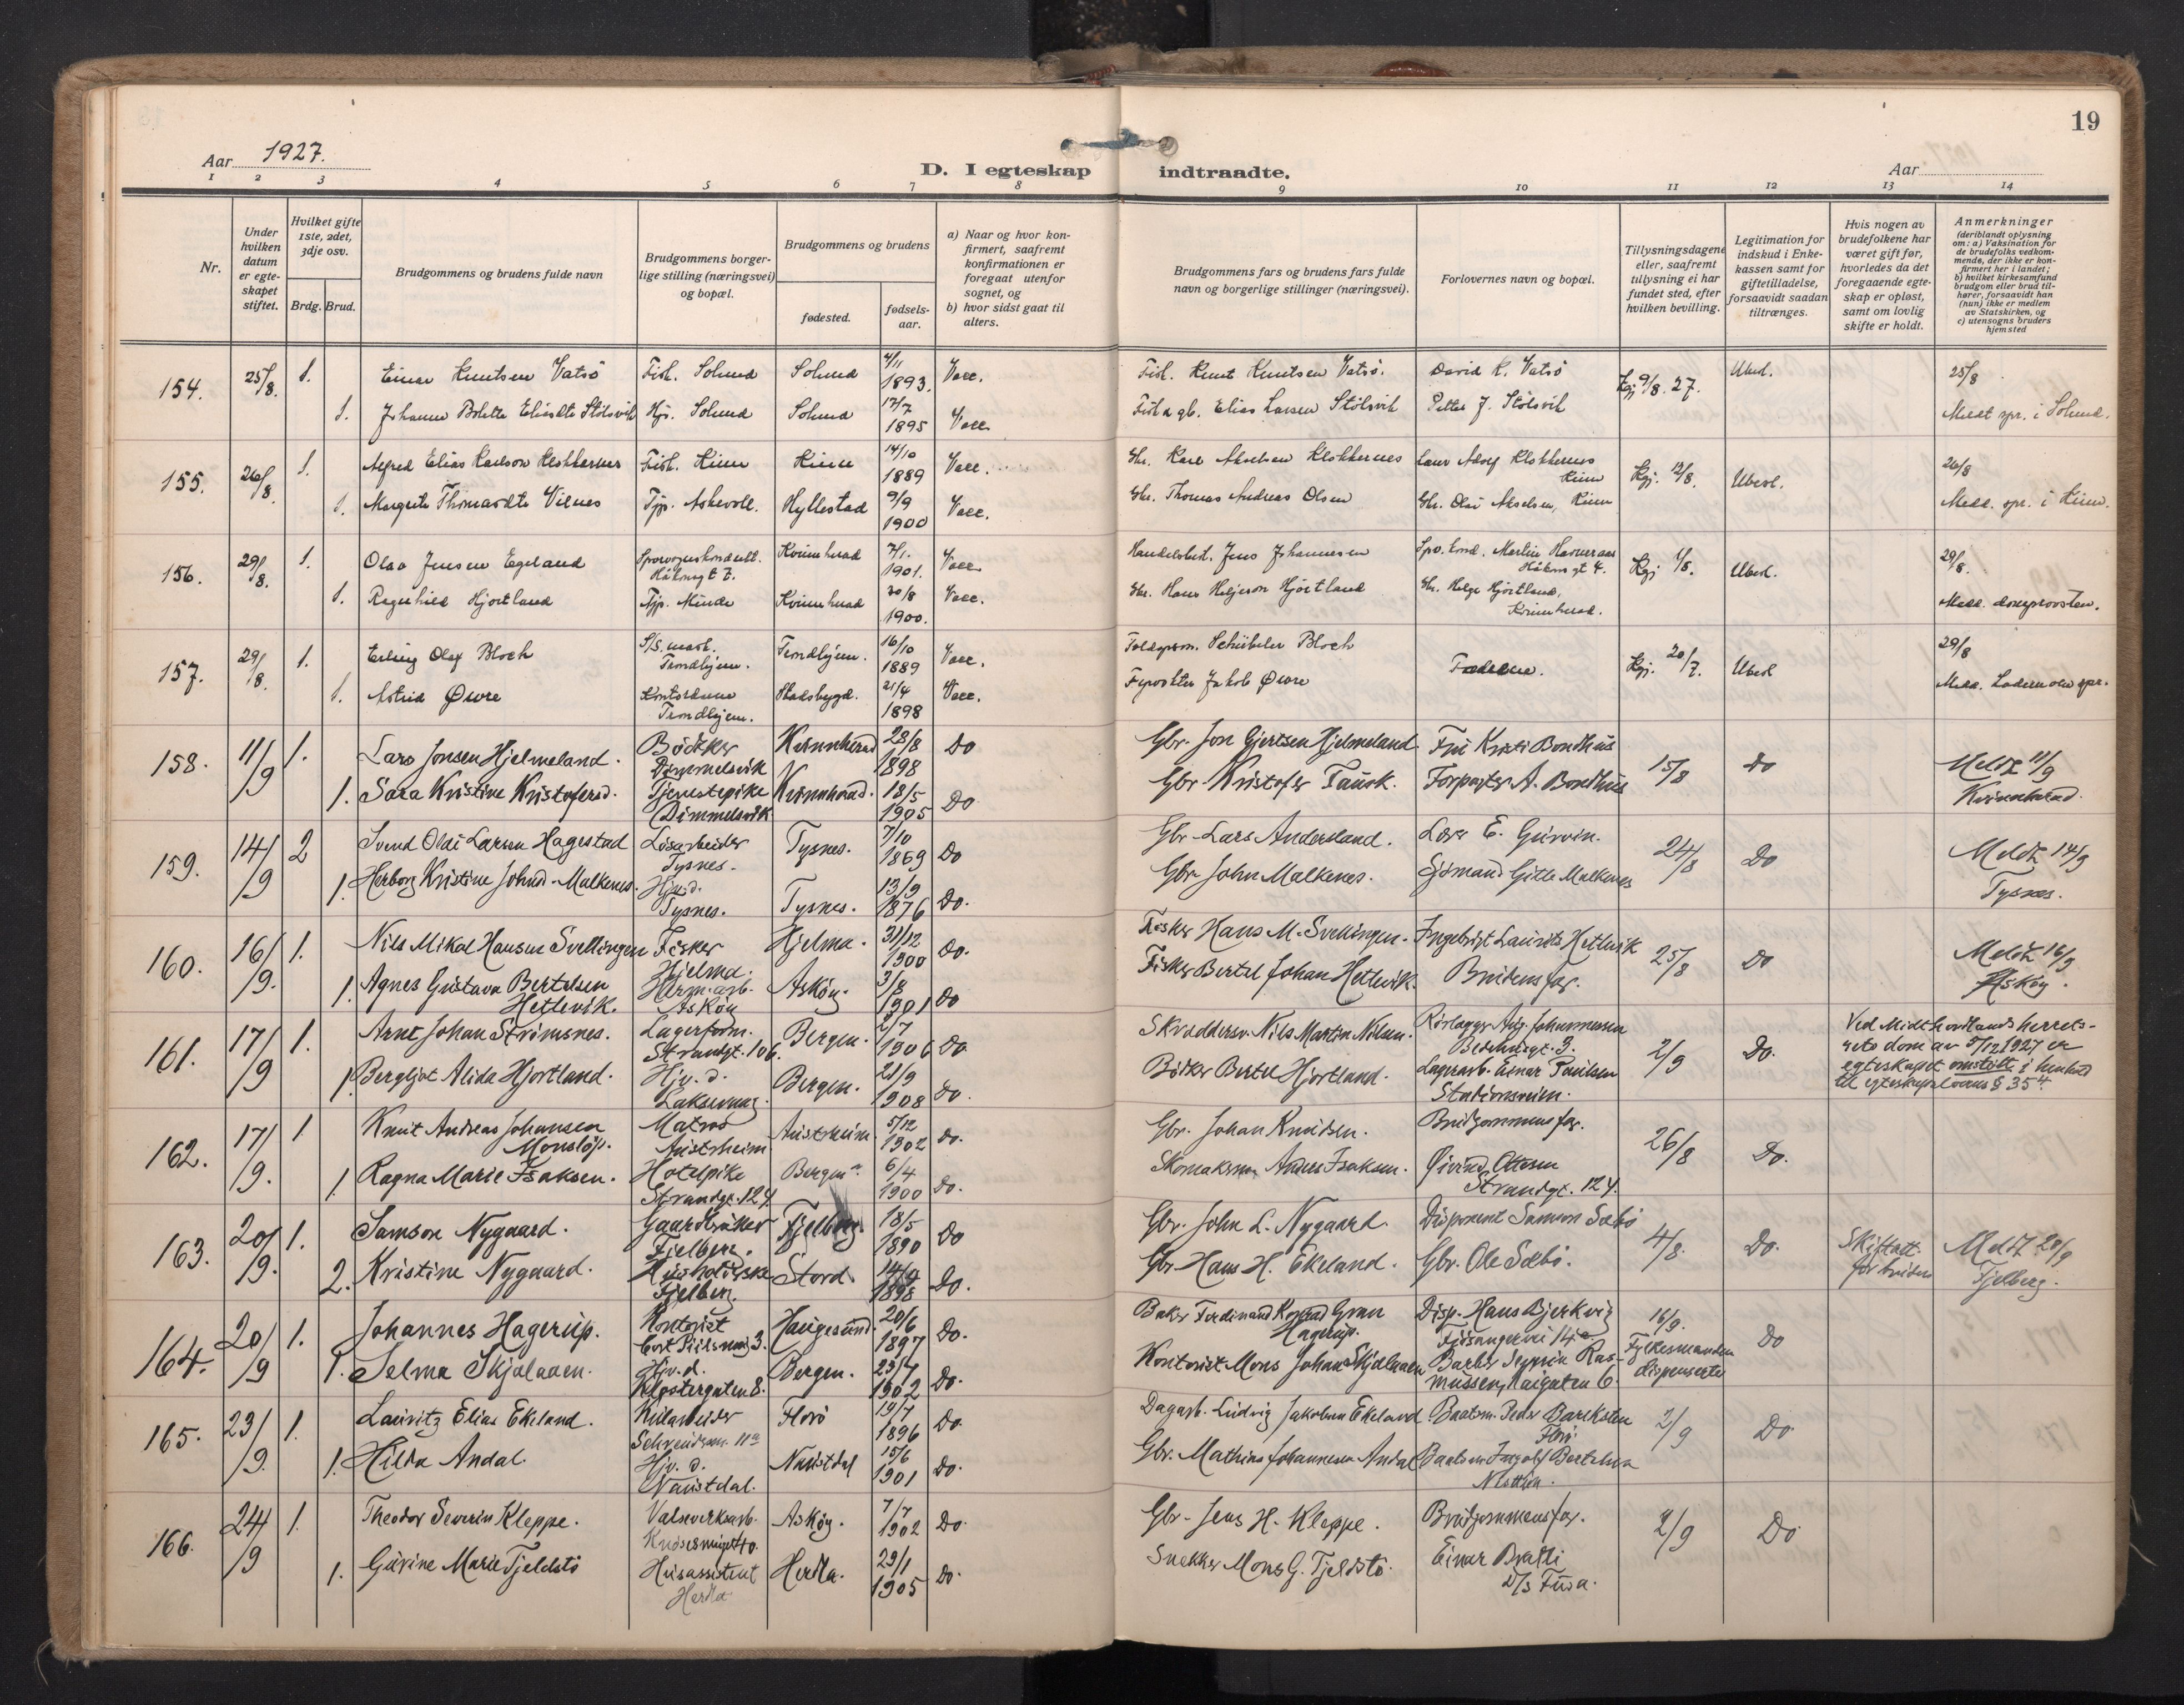 19
Aar 1927.
D. I egteskap indtraadte.
Aar
1 2 3 4 5 6 7 8 9 10 11 12 13 14
Nr.
Under hvilken datum er egte-skapet stiftet.
Hvilket gifte 1ste, 2det, 3dje osv.
Brdg. Brud.
Brudgommens og brudens fulde navn
Brudgommens borger-lige stilling (næringsvei) og bopæl.
Brudgommens og brudens
fødested.
fødsels-aar.
a) Naar og hvor kon-firmert, saafremt konfirmationen er foregaat utenfor sognet, og
b) hvor sidst gaat til alters.
Brudgommens fars og brudens fars fulde navn og borgerlige stillinger (næringsvei).
Forlovernes navn og bopæl.
Tillysningsdagene eller, saafremt tillysning ei har fundet sted, efter hvilken bevilling.
Legitimation for indskud i Enke-kassen samt for giftetilladelse, forsaavidt saadan tiltrænges.
Hvis nogen av brudefolkene har været gift før, hvorledes da det foregaaende egte-skap er opløst, samt om lovlig skifte er holdt.
Anmerkninger
(deriblandt oplysning om: a) Vaksination for de brudefolks vedkom-mende, der ikke er kon-firmert her i landet;
b) hvilket kirkesamfund brudgom eller brud til-hører, forsaavidt han (hun) ikke er medlem av Statskirken, og
c) utensogns bruders hjemsted
154. 25/8. 1. Einar Knutsen Vatsö Fisk. Solund Solund 4/11 1893. Vacc. Fisk. Knut Knutsen Vatsö. David K. Vatsö Kgj 9/8. 27. Ubesl. 25/8
1. Johanne Bolette Eliasdtr Stölsvik Hjv. Solund Solund 17/7 1895 Vacc. Fisk & gb. Elias Larsen Stölsvik Petter J. Stölsvik Meldt spr. i Solund.
155. 26/8. 1. Alfred Elias Karlson Klokkernes Fisk. Kinn Kinn 14/10 1889 Vacc. Gbr. Karl Akselsen Klokkernes Laur Adolf Klokkernes Kinn Kgj. 12/8. Ubesl. 26/8
1. Margrete Thomasdtr Vilnes Tjp. Askevoll. Hyllestad 9/9 1900 Vacc. Gbr. Thomas Andreas Olsen Gbr. Olai Akselsen, Kinn Medd. spr. i Kinn.
156. 29/8. 1. Olav Jensen Egeland Sporvognskondukt. Håkonsgt 7. Kvinnherad 7/1. 1901. Vacc. Handelsbest. Jens Johannesen Spv. kond. Martin Havneraas Håkonsgt 4. Kgj 1/8. Ubesl. 29/8.
1. Ragnhild Hjortland Tjp. Minde Kvinnherad 20/8 1900. Vacc. Gbr. Hans Heljeson Hjortland Gbr. Helge Hjortland, Kvinnherad. Medd. domprovsten.
157. 29/8. 1. Erling Olaf Bloch S/S. mask. Trondhjem. Trondhjem. 16/10 1889 Vacc. Schübeler Bloch Fædrene. Kgj. 20/7. Ubesl 29/8
1. Astrid Øwre Kontordame Trondhjem. Stadsbygd. 21/4 1898 Vacc. Jakob Øwre Medd. Lademoen spr.
158. 11/9 1. Lars Jonsen Hjelmeland. Bödker Dimmelsvik Kvinnherad 23/8 1898 Do Gbr. Jon Gjertsen Hjelmeland. Fru Kristi Bondhus 15/8 Do Meldt 11/9
1. Sara Kristine Kristofersd. Tjenestepike Dimmelsvik Kvinnherad. 18/5 1905 Do Gbr. Kristofer Tausk. Forpagter A. Bondhus Kvinnherad.
159. 14/9 2 Svend Olai Larsen Hagestad Lösarbeider Tysnes. Tysnes. 7/10 1869 Do Gbr. Lars Andersland. Lars E. Gurvin. 24/8 Do Meldt 14/9
1. Herborg Kristine Johnsd. Malkenes. Hjv. d. Tysnes. Tysnes. 13/9 1876 Do. Gbr John Malkenes. Sjömand Gitle Malkenes Tysnes.
160. 16/9. 1. Nils Mikal Hansen Svellingen Fisker Hjelma. Hjelma. 31/12 1900 Do. Fisker Hans M. Svellingen. Ingebrigt Laurits Hetlevik 25/8 Do Meldt 16/9
1. Agnes Gustava Bertelsen Hetlevik. Herm. arb. Askøy Askøy. 3/8 1901 Do Fisker Bertel Johan Hetlevik. Brudens far. Askøy.
161. 17/9 1. Arnt Johan Strömsnes. Lagerform. Strandgt. 106. Bergen. 2/7 1906 Do. Skræddersv. Nils Martin Nilsen. Rörlægger Aug. Johannessen 3. 2/9 Do. Ved Midthordlands herreds-rets dom av 5/12 1927 er egteskapet omstötte i henhold til egteskapslovens § 35 4.
1. Bergljot Alida Hjortland. Hjv. d. Laksevaag. Bergen. 21/9 1908 Do. Bödker Bertel Hjortland. Lagerarb. Einar Paulsen Stationsveien.
162. 17/9. 1. Knut Andreas Johansen Monslöp. Matros Austrheim Austrheim. 5/12 1902 Do. Gbr. Johan Knudsen. Brudgommens far. 26/8 Do.
1. Ragna Marie Isaksen. Hotelpike Strandgt. 124. Bergen 6/4 1900 Do. Skomakerm. Anders Isaksen. Øivind Ottesen Strandgt. 124.
163. 20/9. 1. Samson Nygaard. Gaardbruker Fjelberg. Fjelberg. 18/5 1890 Do Gbr. John L. Nygaard. Disponent Samson Sæbö 4/8. Do. Skifteatt. for bruden Meldt 20/9
2. Kristine Nygaard. Husholderske Fjelberg. Stord. 1898 Do. Gbr. Hans H. Ekeland. Gbr. Ole Sæbö. Fjelberg.
164. 20/9 1. Johannes Hagerup. Kontorist Cort Piilsmug 3. Haugesund. 20/6 1897 Do. Baker Ferdinand Konrad Gran Hagerup. Disp. Hans Bjerkvig Fjösangervei 14a 16/9. Fylkesmanden dispenserte Do
1. Selma Skjælaaen. Hjv. d. Klostergaten 8. Bergen. 23/7 1902 Do. Kontorist Mons Johan Skjælaaen Barber Severin Ras-mussen, Kaigaten 6.
165. 23/9. 1. Lauritz Elias Ekeland. Kularbeider 11a Florö 19/7 1896 Do. Dagarb. Ludvig Jakobsen Ekeland Baatsm. Peder Barlksten Florö 2/9 Do.
1. Hilda Andal. Hjv. d. Naustdal. Naustdal 15/6 1901 Do. Gbr. Mathias Johannesen Andal Baatsm Ingolf Bertelsen
166. 24/9 1. Theodor Severin Kleppe. Valseverksarb. Knösesmuget 40. Askøy. 7/7 1902 Do. Gbr. Jens H. Kleppe. Brudgommens far. 2/9 Do
1. Gurine Marie Tjeldstö Husassistent Herdla Herdla. 29/1 1905 Do. Snekker Mons G. Tjeldstö. Einar Bratli D/S Fusa.